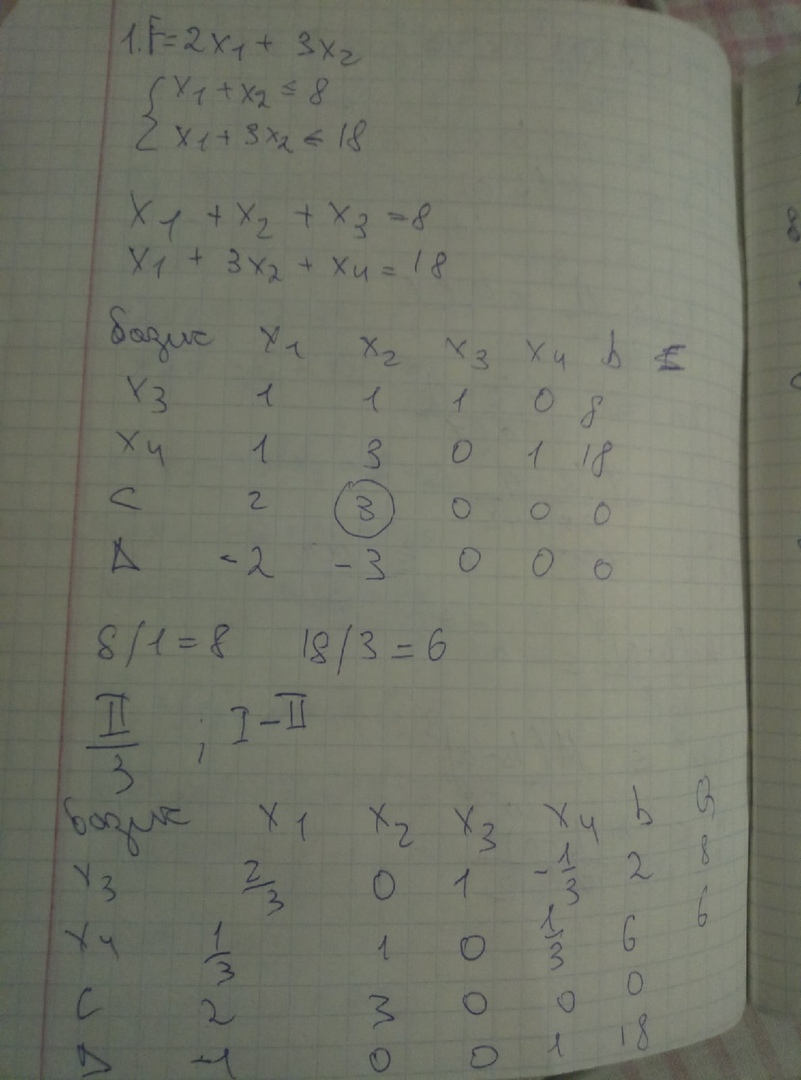 1. F=2x₁ + 3x₂
{ x₁ + x₂ ≤ 8
x₁ + 3x₂ ≤ 18
x₁ + x₂ + x₃ = 8
x₁ + 3x₂ + x₄ = 18
базис x₁ x₂ x₃ x₄ b
x₃ 1 1 1 0 8
x₄ 1 3 0 1 18
C 2 3 0 0 0
Δ -2 -3 0 0 0
8/1=8 18/3=6
II/3 ; I-II
базис x₁ x₂ x₃ x₄ b Q
x₃ 2/3 0 1 -1/3 2 8
x₄ 1/3 1 0 1/3 6 6
C 2 3 0 0 0
Δ -1 0 0 1 18